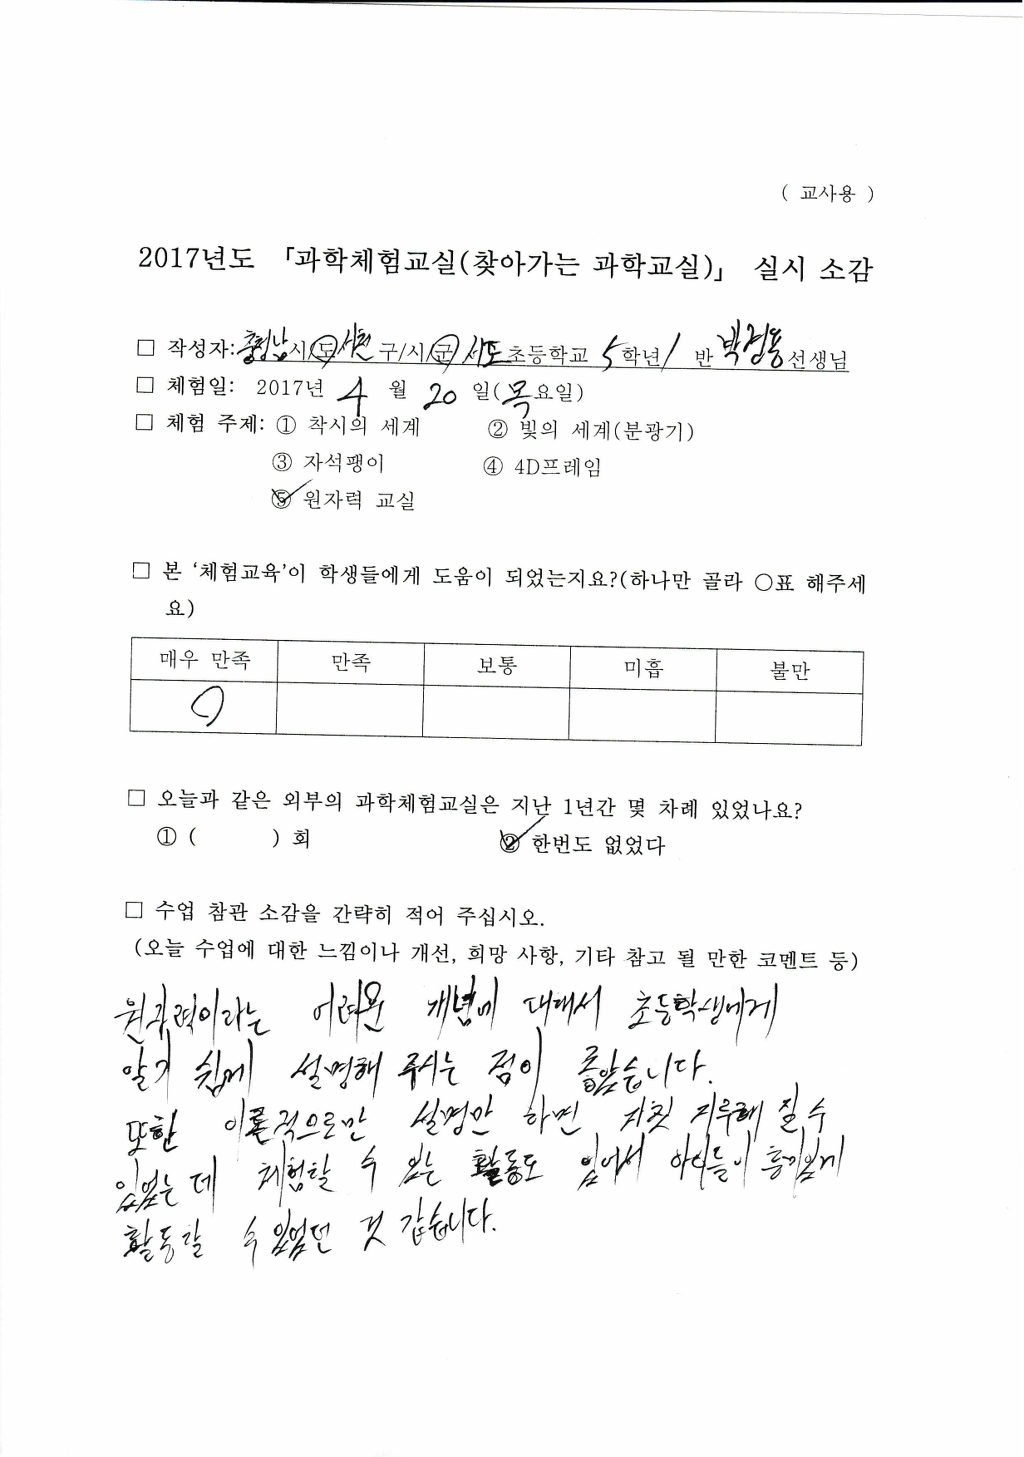 ( 교사용 )
2017년도 「과학체험교실(찾아가는 과학교실)」 실시 소감
□ 작성자: 충청남시/도 서천 구/시/군 서도초등학교 5학년/ 반 박경용선생님
□ 체험일: 2017년 4 월 20 일(목요일)
□ 체험 주제: ① 착시의 세계 ② 빛의 세계(분광기)
③ 자석팽이 ④ 4D프레임
⑤ 원자력 교실
□ 본 '체험교육'이 학생들에게 도움이 되었는지요?(하나만 골라 ○표 해주세
요)
매우 만족 만족 보통 미흡 불만
○
□ 오늘과 같은 외부의 과학체험교실은 지난 1년간 몇 차례 있었나요?
① ( ) 회 ② 한번도 없었다
□ 수업 참관 소감을 간략히 적어 주십시오.
(오늘 수업에 대한 느낌이나 개선, 희망 사항, 기타 참고 될 만한 코멘트 등)
원자력이라는 어려운 개념에 대해서 초등학생에게
알기 쉽게 설명해 주시는 점이 좋았습니다.
또한 이론적으로만 설명만 하면 자칫 지루해 질 수
있었는 데 체험할 수 있는 활동도 있어서 아이들이 흥미있게
활동할 수 있었던 것 같습니다.